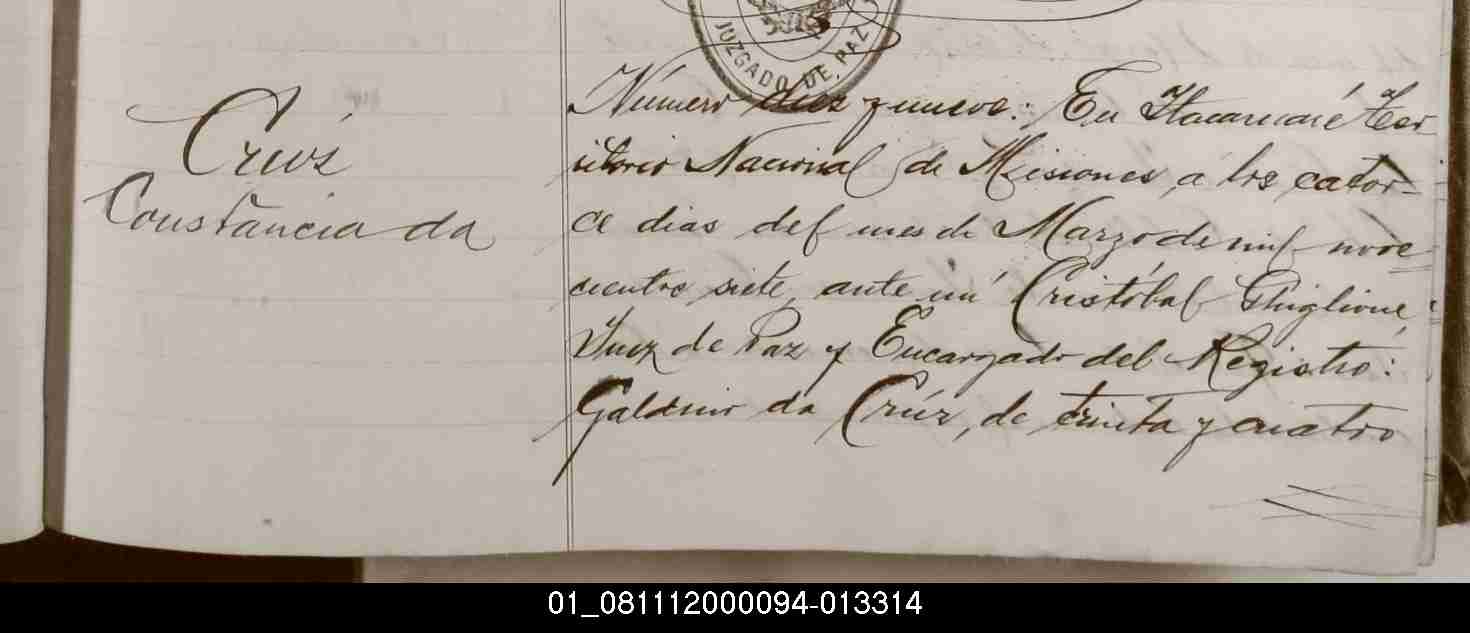 JUZGADO DE PAZ
Crúz
Constancia da
Número diez y nueve: En Itacaruaré Ter
ritorio Nacional de Misiones, á los cator-
ce dias del mes de Marzo de mil nove
cientos siete, ante mí Cristóbal Ghiglione
Juez de Paz y Encargado del Registro:
Galdino da Crúz, de trinta y cuatro
01_081112000094-013314